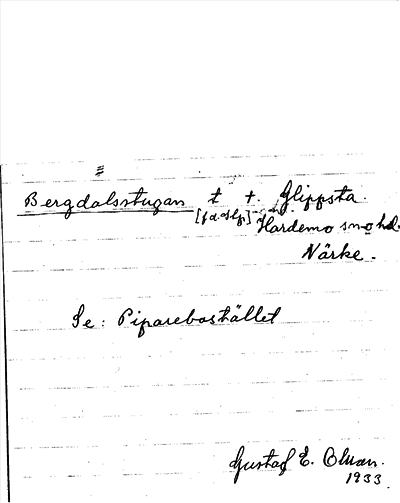 Bergdalsstugan t t. Glippsta.
[f.d. slp] Hardemo sn o hd.
Närke.
Se: Piparebostället
Gustaf E. Olman.
1933.